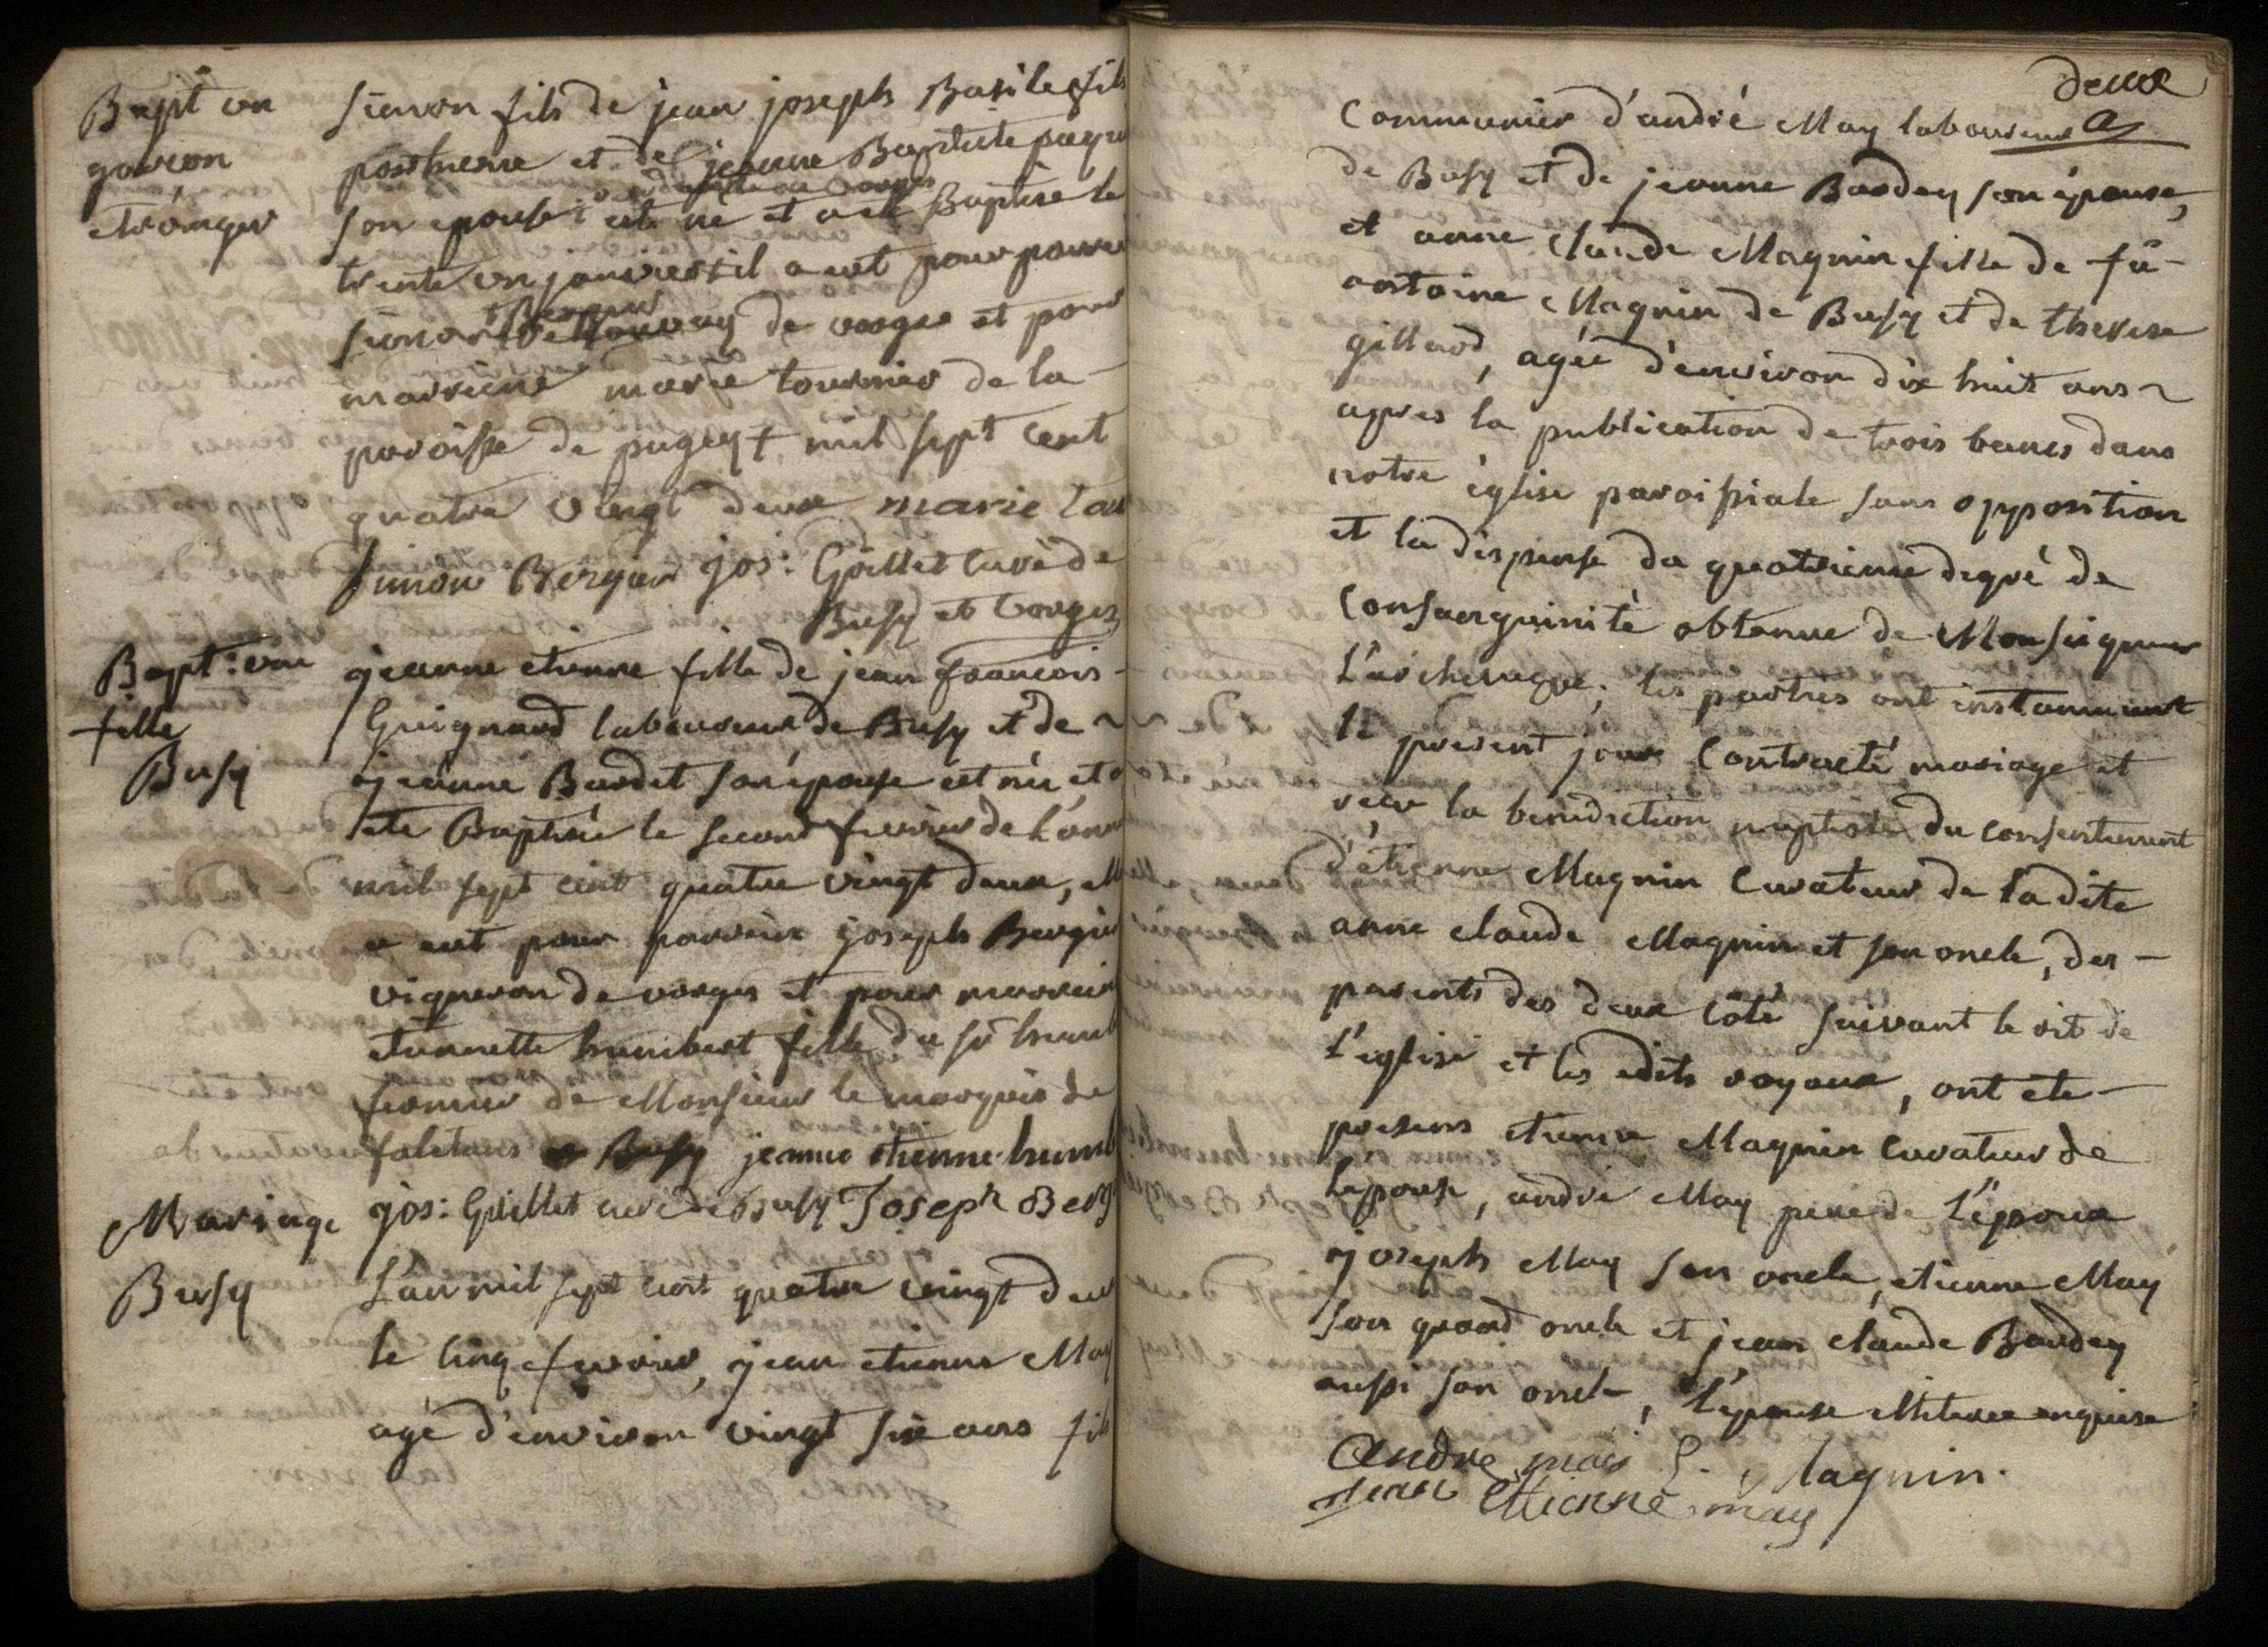 Bapt un
garcon
etranger
simon fils de jean joseph Basile fils
posthume et de jeanne Baptiste
son epouse est né et a eté Baptisé le
trente un janvier il a eut pour parrain
simon Bergier de vorges et pour
marreine marie tournier de la
paroisse de pugey + mil sept cent
quatre vingt deux marie
simon Bergier jos: Guillet curé de
Busy et vorges
Bapt: une
fille
Busy
jeanne etienne fille de jean francois
Guignard laboureur de Busy et de
jeanne Bardet son épouse est née et a
ete Baptisée le second fevrier de l'annee
mil sept cent quatre vingt deux, elle
a eut pour parrein joseph Bergier
vigneron de vorges et pour marreine
etiennette humbert fille du sr humb
fermier de Monsieur le marquis de
faletans Busy jeanne etienne humb
jos: Guillet curé de Busy Joseph Berg
Mariage
Busy
L'an mil sept cent quatre vingt deux
le cinq fevrier, jean etienne May
agé d'environ vingt six ans fils
deux
Communier d'andré May laboureur
de Busy et de jeanne Bardey son épouse,
et anne claude Magnin fille de fû
antoine Magnin de Busy et de therese
gillard, agée d'environ dix huit ans
apres la publication de trois bancs dans
notre église paroissiale sans opposition
et la dispense du quatrieme degré de
Consanguinité obtenue de Monseigneur
L'archeveque; les parties ont instamment
le present jour Contracté mariage et
reçu la benediction nuptiale du consentement
d'étienne Magnin Curateur de la dite
anne claude Magnin et son oncle, des
parents des deux côté suivant le rit de
l'eglise et les edits royaux, ont ete
presens etienne Magnin Curateur de
l'epouse, andré May pere de l'époux
joseph May son oncle, etienne May
son grand oncle et jean claude Bardey
aussi son oncle, l'epouse illiterée enquise
andre mai E. Magnin.
jean Ettienne may